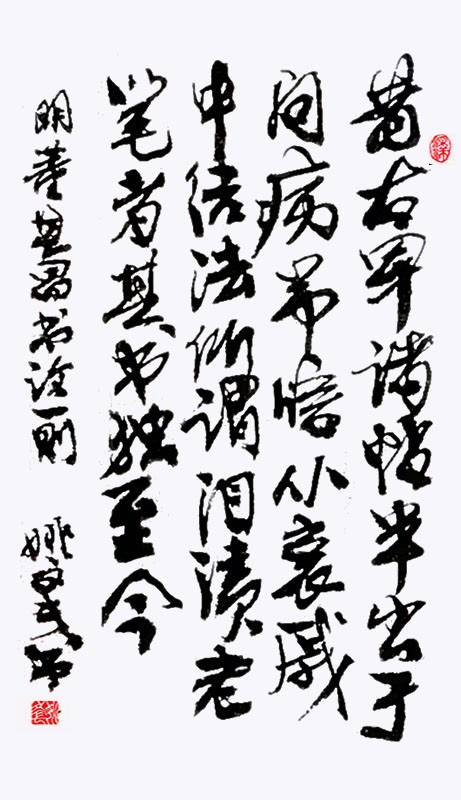 昔右军诸帖半出于
问病吊唁从哀戚
中结法所谓泪渍老
笔者其书独至今
明董其昌书论一则
姚